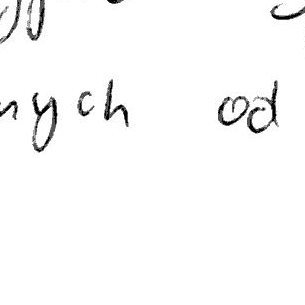 nych od